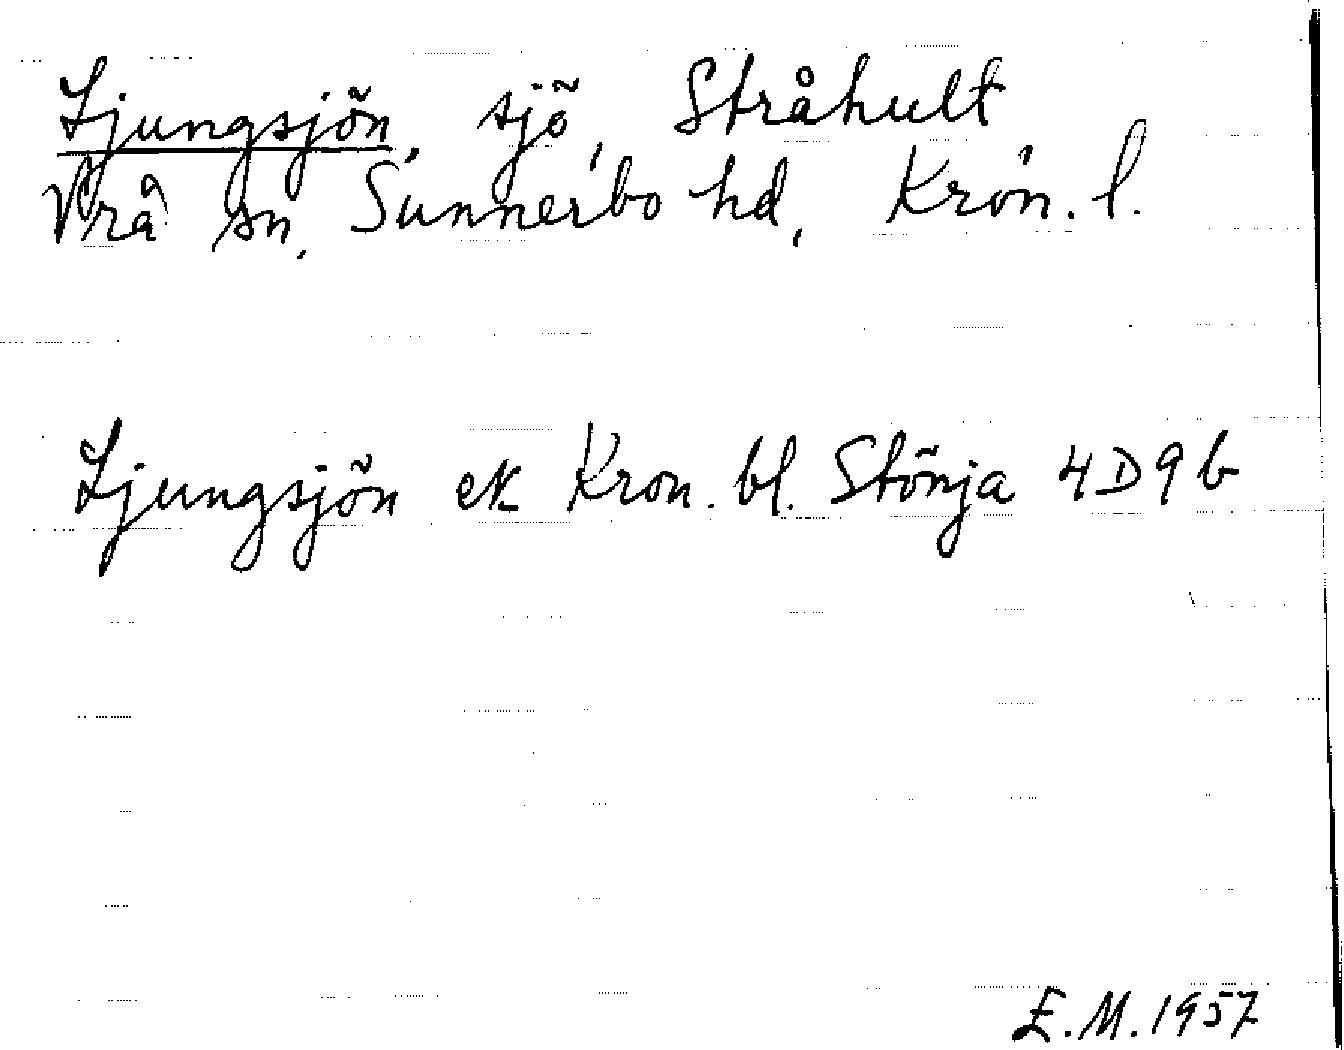 Ljungsjön, sjö, Stråhult
Vrå sn, Sunnerbo hd, Kron. l.
Ljungsjön ek Kron. bl. Stönja 4D9b
E.M. 1957